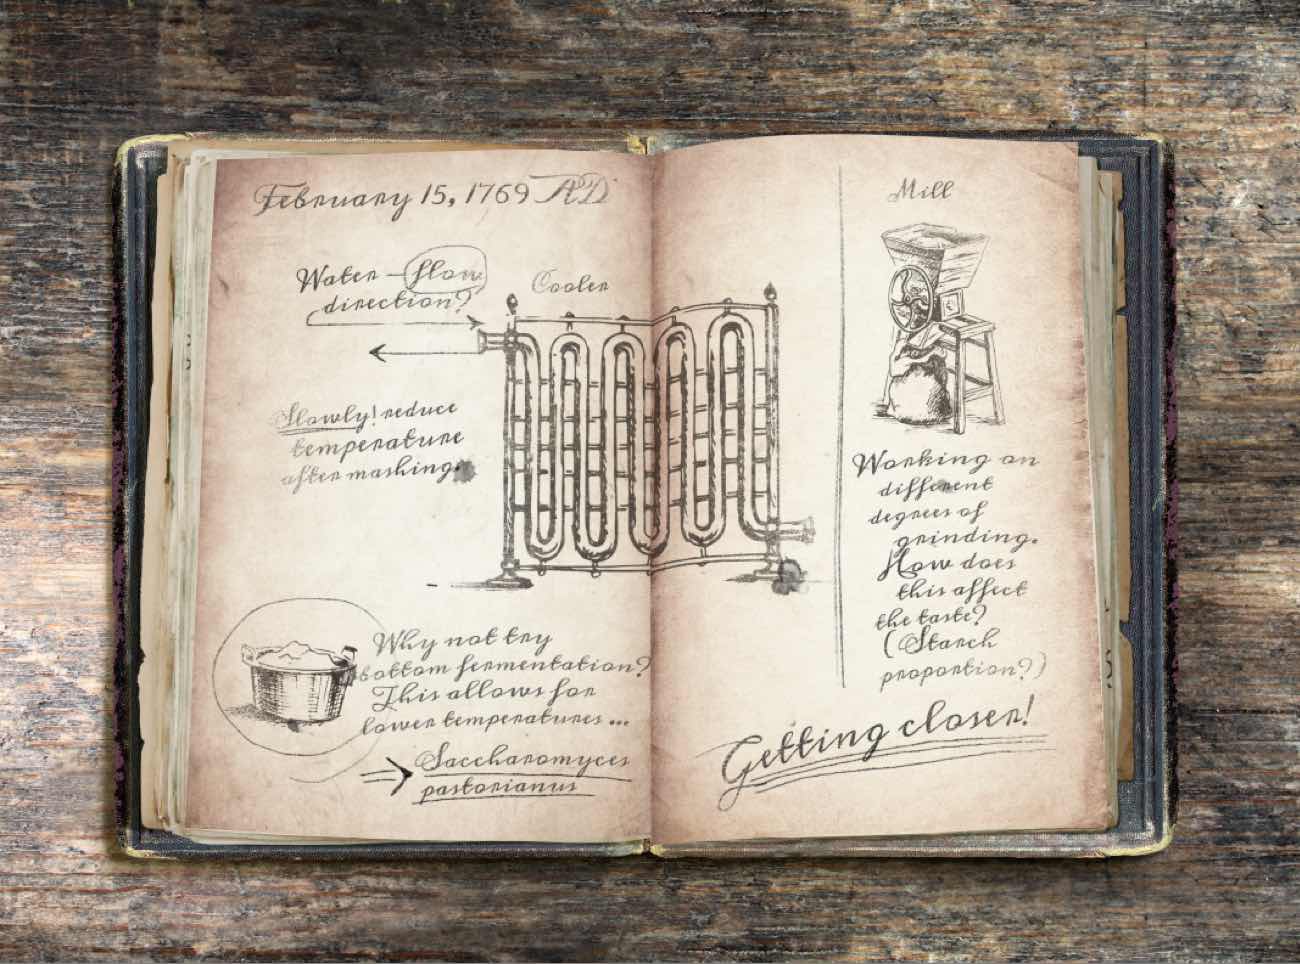 February 15, 1769 AD
Water - flow
direction?
Cooler
Slowly! reduce
temperature
after mashing.
Why not try
bottom fermentation?
This allows for
lower temperatures ...
Saccharomyces
pastorianus
Mill
Working on
different
degrees of
grinding.
How does
this affect
the taste?
(Starch
proportion?)
Getting closer!